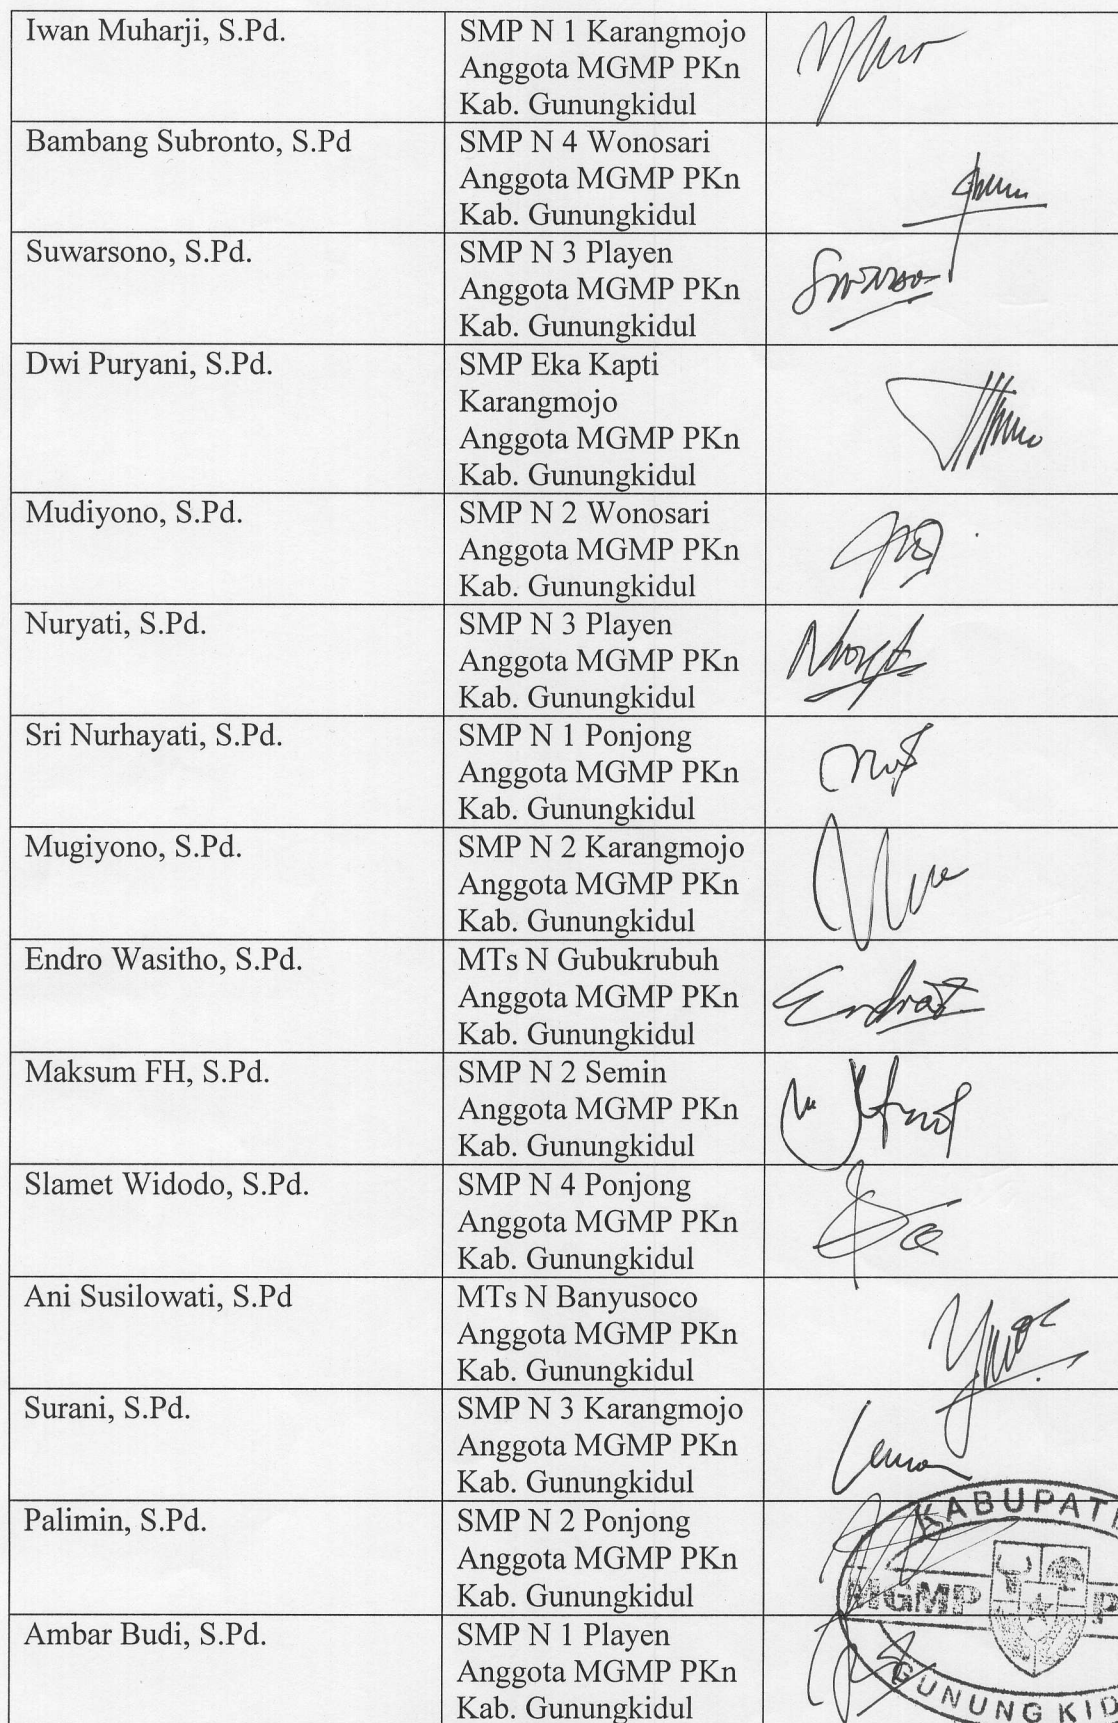 Iwan Muharji, S.Pd.
SMP N 1 Karangmojo
Anggota MGMP PKn
Kab. Gunungkidul
Bambang Subronto, S.Pd
SMP N 4 Wonosari
Anggota MGMP PKn
Kab. Gunungkidul
Suwarsono, S.Pd.
SMP N 3 Playen
Anggota MGMP PKn
Kab. Gunungkidul
Dwi Puryani, S.Pd.
SMP Eka Kapti
Karangmojo
Anggota MGMP PKn
Kab. Gunungkidul
Mudiyono, S.Pd.
SMP N 2 Wonosari
Anggota MGMP PKn
Kab. Gunungkidul
Nuryati, S.Pd.
SMP N 3 Playen
Anggota MGMP PKn
Kab. Gunungkidul
Sri Nurhayati, S.Pd.
SMP N 1 Ponjong
Anggota MGMP PKn
Kab. Gunungkidul
Mugiyono, S.Pd.
SMP N 2 Karangmojo
Anggota MGMP PKn
Kab. Gunungkidul
Endro Wasitho, S.Pd.
MTs N Gubukrubuh
Anggota MGMP PKn
Kab. Gunungkidul
Maksum FH, S.Pd.
SMP N 2 Semin
Anggota MGMP PKn
Kab. Gunungkidul
Slamet Widodo, S.Pd.
SMP N 4 Ponjong
Anggota MGMP PKn
Kab. Gunungkidul
Ani Susilowati, S.Pd
MTs N Banyusoco
Anggota MGMP PKn
Kab. Gunungkidul
Surani, S.Pd.
SMP N 3 Karangmojo
Anggota MGMP PKn
Kab. Gunungkidul
Palimin, S.Pd.
SMP N 2 Ponjong
Anggota MGMP PKn
Kab. Gunungkidul
Ambar Budi, S.Pd.
SMP N 1 Playen
Anggota MGMP PKn
Kab. Gunungkidul
KABUPATE
MGMP P
GUNUNG KID